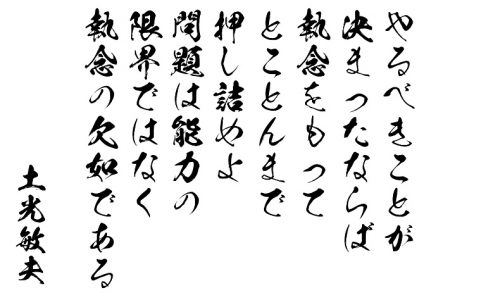 やるべきことが
決まったならば
執念をもって
とことんまで
押し詰めよ
問題は能力の
限界ではなく
執念の欠如である
土光敏夫